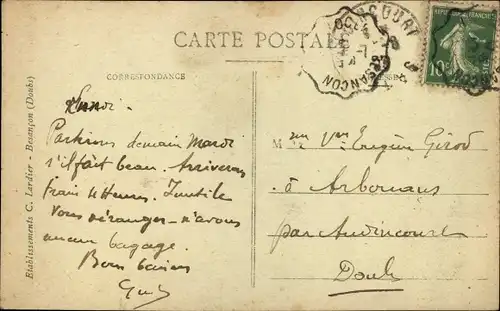 CARTE POSTALE
CORRESPONDANCE
Lundi.
Partirons demain Mardi
s'il fait beau. Arriverons
train 11 Heures. Inutile
vous déranger - n'avons
aucun bagage.
Bons baisers
Mme Vve Eugène Girod
à Arbouans
par Audincourt
Doubs
Etablissements C. Lardier - Besançon (Doubs)
BESANÇON
REPUBLIQUE FRANÇAISE
10